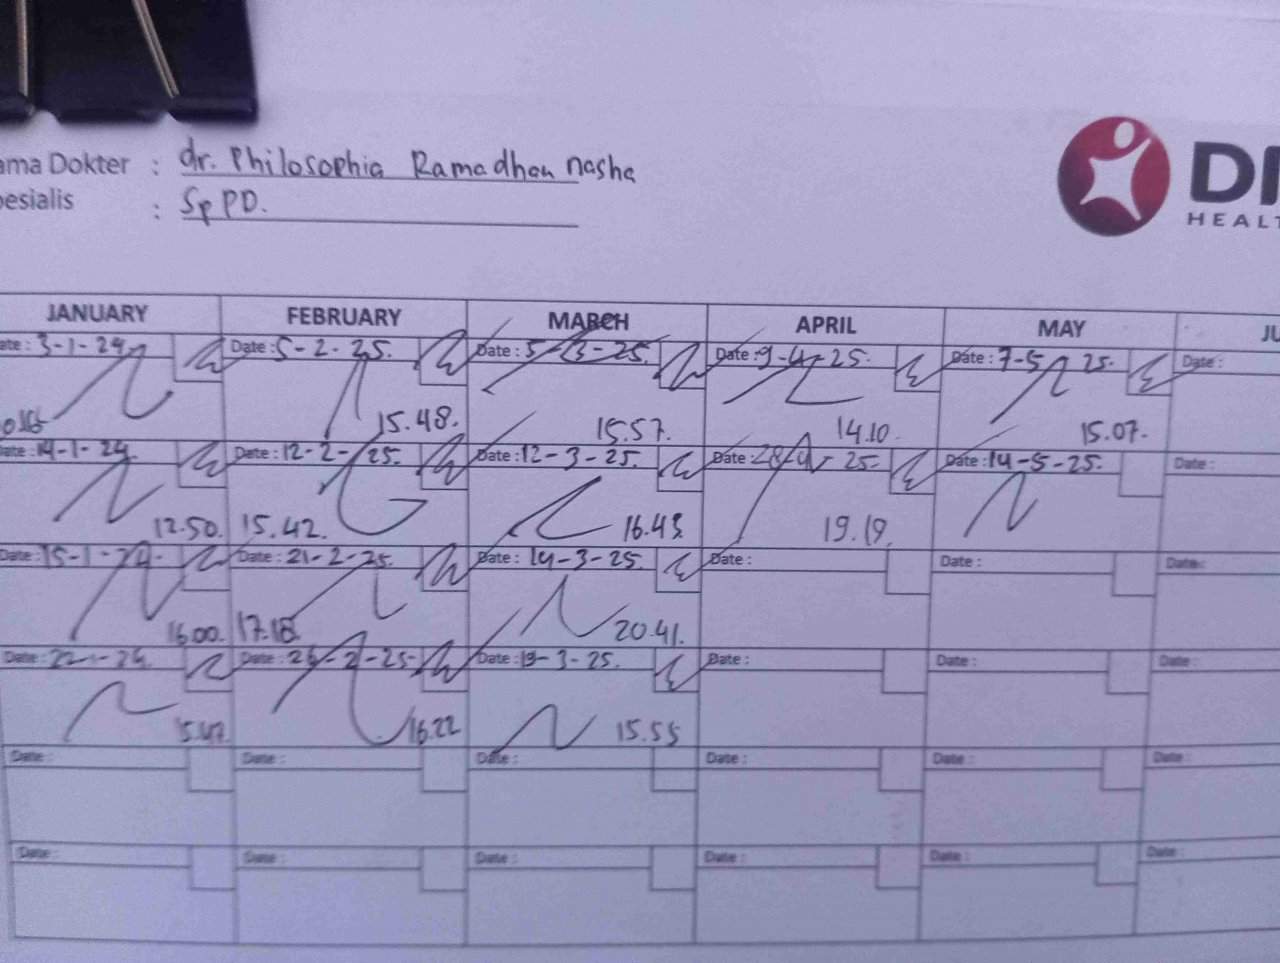 ama Dokter : dr. Philosophia Ramadhan nasha
pesialis : Sp PD.
DI
HEALT
JANUARY FEBRUARY MARCH APRIL MAY JU
ate: 3-1-24 Date: 5-2-25. Date: 5-3-25. Date: 9-4-25. Date: 7-5-25. Date:
15.48. 15.57. 14.10. 15.07.
ate: 14-1-24. Date: 12-2-25. Date: 12-3-25. Date: 25. Date: 14-5-25. Date:
12.50. 15.42. 16.43. 19.19.
Date: 15-1-24. Date: 21-2-25. Date: 14-3-25. Date: Date: Date:
16.00. 17.18. 20.41.
Date: 22-1-24. Date: 26-2-25- Date: 19-3-25. Date: Date: Date:
15.47. 16.22 15.55
Date: Date: Date: Date: Date: Date:
Date: Date: Date: Date: Date: Date: